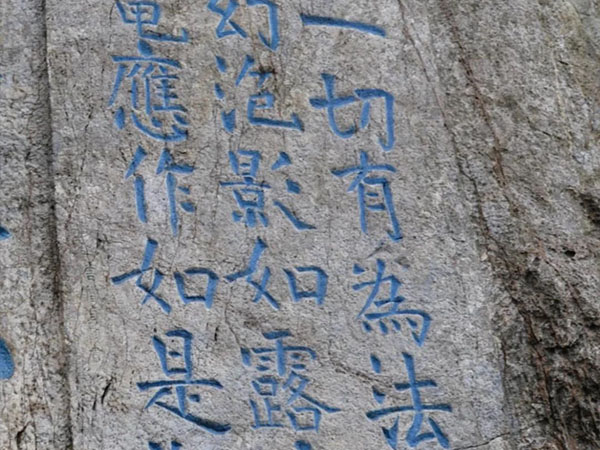 一切有為法
幻泡影如露
電應作如是